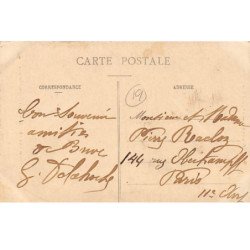 CARTE POSTALE
CORRESPONDANCE
ADRESSE
Bon Souvenir
amitiés
de Buve
G. Delahoche
Monsieur et Madame
Pierre
144 rue Oberkampf
Paris
11e Arr